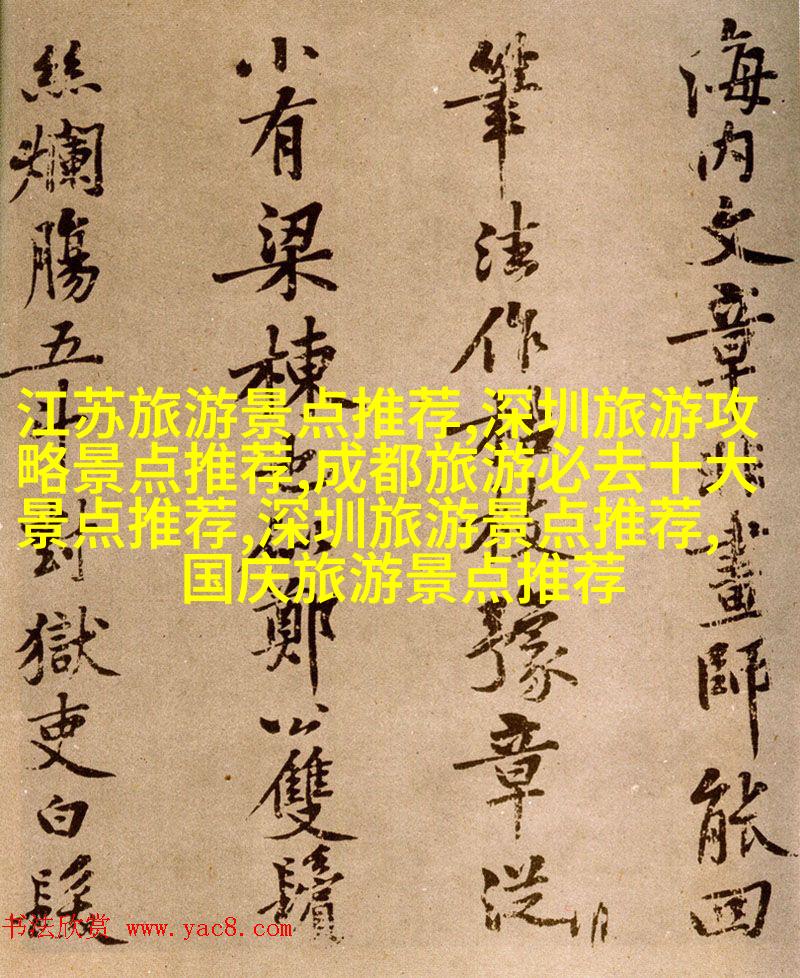 海内文章非畫師能回
筆法作枯枝豫章從
小有梁棟也似鄭公雙鬢
絲爛腸五斗對獄吏白髮
江苏旅游景点推荐,深圳旅游攻
略景点推荐,成都旅游必去十大
景点推荐,深圳旅游景点推荐,
国庆旅游景点推荐
书法欣赏 www.yac8.com